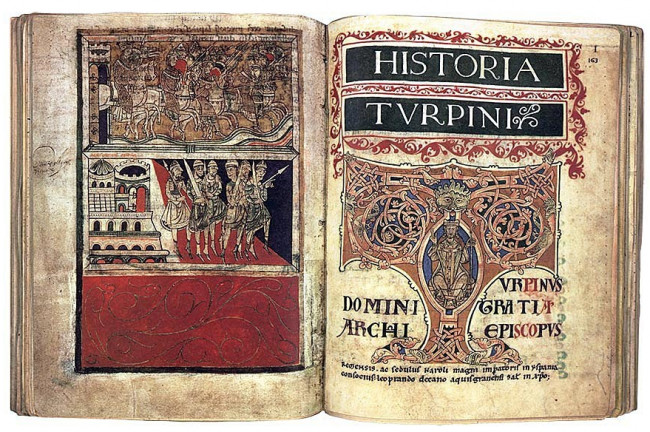 I
163
HISTORIA
TVRPINI
TURPINUS
DOMINI GRATIA
ARCHI EPISCOPUS
REMENSIS. ac sedulus Karoli magni imperatoris in yspania
consocius leoprando decano aquisgranensi salt in xpo;